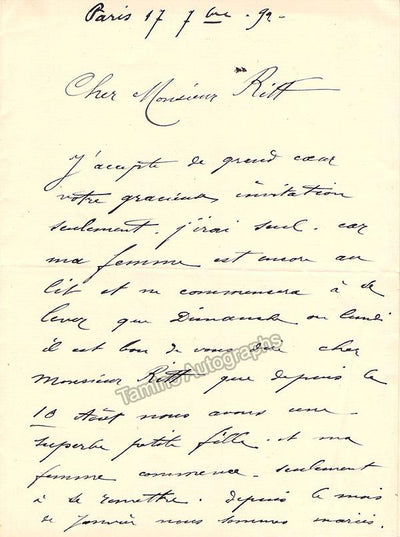 Paris 17 7bre - 92 -
Cher Monsieur Ritt
J'accepte de grand cœur
votre gracieuse invitation
seulement. j'irai seul. car
ma femme est encore au
lit et ne commencera à se
lever que Dimanche ou lundi
il est bon de vous dire cher
Monsieur Ritt que depuis le
10 Août nous avons une
superbe petite fille. et ma
femme commence seulement
à se remettre. depuis le mois
de Janvier nous sommes mariés.
Tamino Autographs